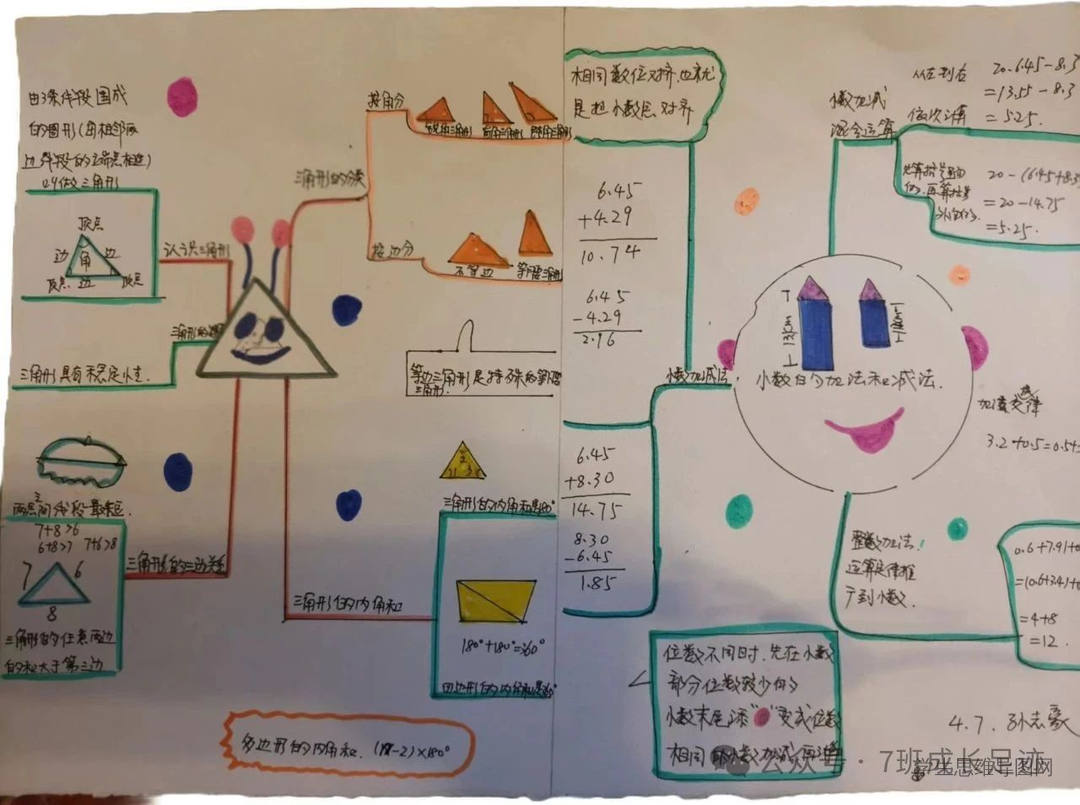 由3条线段围成
的图形(每相邻两
边线段的端点相连)
叫做三角形
顶点
边 角 边
顶点 边 顶点
认识三角形
三角形具有稳定性.
两点间线段最短.
7+8>6
6+8>7 7+6>8
7 6
8
三角形的任意两边
的和大于第三边
三角形的三边关系
三角形的分类
按角分
锐角三角形 直角三角形 钝角三角形
按边分
不等边 等腰三角形
等边三角形是特殊的等腰
三角形.
三角形的内角和是180°
三角形的内角和
180°+180°=360°
四边形的内角和是360°
多边形的内角和. (n-2)×180°
相同数位对齐.也就
是把小数点对齐
6.45
+4.29
10.74
6.45
-4.29
2.16
6.45
+8.30
14.75
8.30
-6.45
1.85
小数加减法.
小数的加法和减法.
小数加减
混合运算
从左到右
依次计算
20.6.45-8.3
=13.55-8.3
=525.
先算括号里面
的.再算括号
外面的.
20-(6.45+8.3
=20-14.75
=5.25.
加法交换律
3.2+0.5=0.5+
整数加法.
运算定律推
广到小数.
0.6+7.91+0
=(0.6+3.4)+
=4+8
=12.
位数不同时.先在小数
部分位数较少的
小数末尾添"0"变成位数
相同
4.7.孙志豪
公众号·7班成长足迹
学生思维导图网